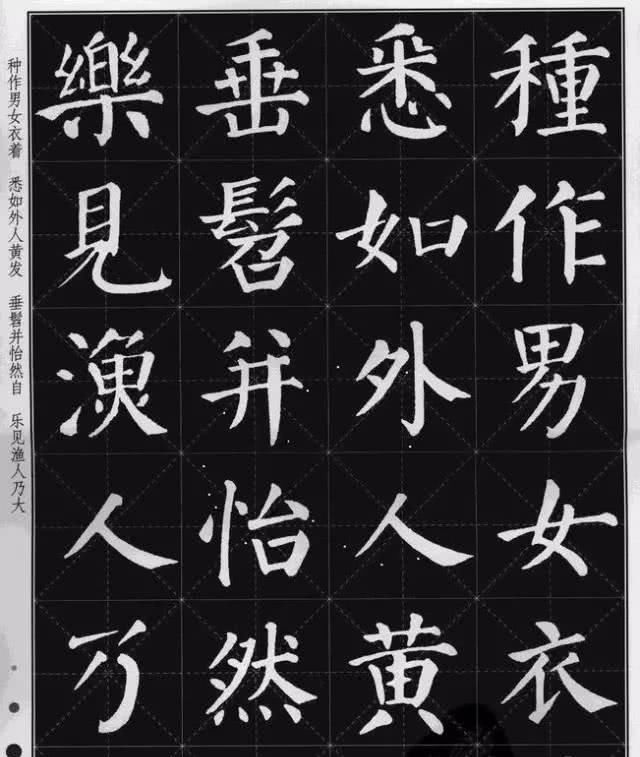 種作男女衣
悉如外人黄
垂髫并怡然
樂見漁人乃
种作男女衣着 悉如外人黄发 垂髫并怡然自 乐见渔人乃大